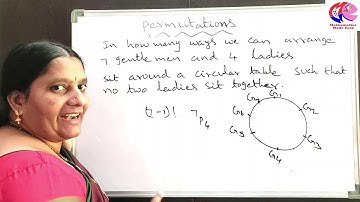 Permutations
In how many ways we can arrange
7 gentlemen and 4 Ladies
sit around a circular table such that
no two ladies sit together.
(7-1)! 7P4
G1
G2
G3
G4
G5
G6
G7
Mathematics
Made Easy